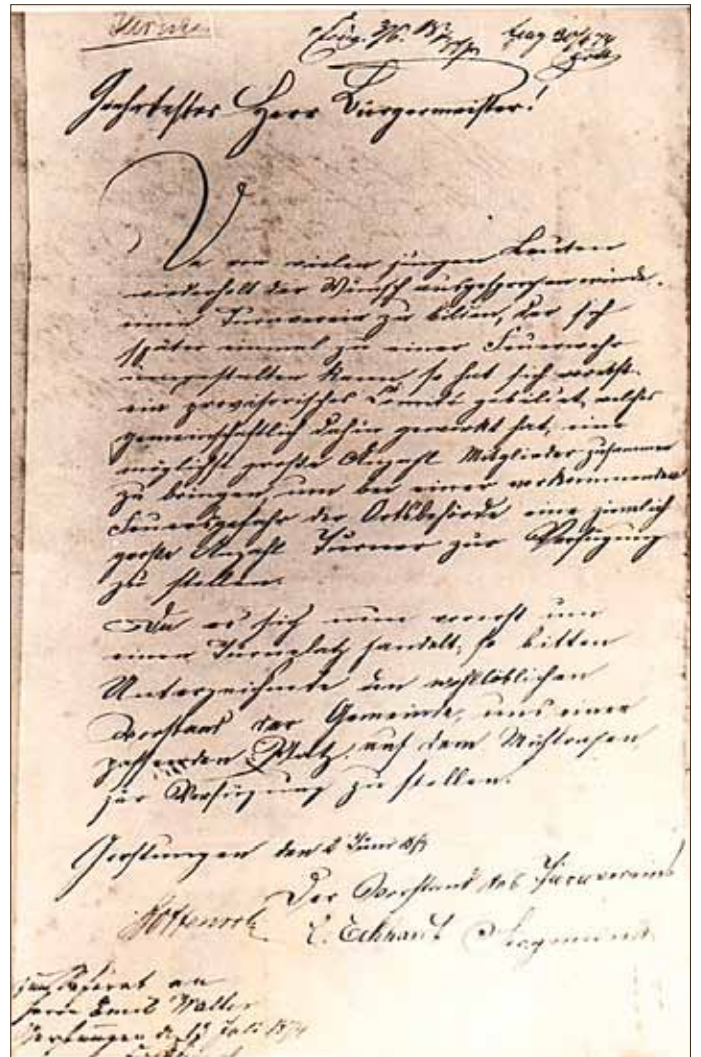 Geehrtester Herr Bürgermeister!
Da von vielen jungen Leuten
wiederholt der Wunsch ausgesprochen wurde,
einen Turnverein zu bilden, der sich
später einmal zu einer Feuerwehr
umgestalten kann, so hat sich vorerst
ein provisorisches Comité gebildet, welches
gemeinschaftlich dahin gewirkt hat, eine
möglichst große Anzahl Mitglieder zusammen
zu bringen, um bei einer vorkommenden
Feuersgefahr der Ortsbehörde eine ziemlich
große Anzahl Turner zur Verfügung
zu stellen.
Da es sich nun vorerst um
einen Turnplatz handelt, so bitten
Unterzeichnete den wohllöblichen
Vorstand der Gemeinde, uns einen
passenden Platz auf dem
zur Verfügung zu stellen.
Gerstungen den 2 Juni
Der Vorstand des Turnvereins
Hottenrott E. Eckhardt
zum Referat an
Herrn Emil Walter
Gerstungen d. Juli 1874